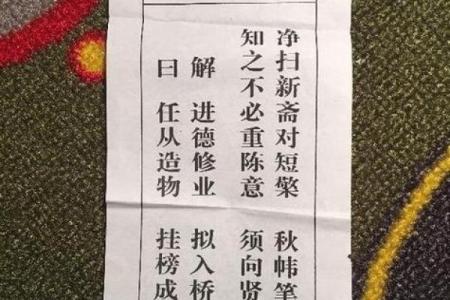 净扫新斋对短檠 秋帏笔
知之不必重陈意 须向贤
解 进德修业 拟入桥
曰 任从造物 挂榜成